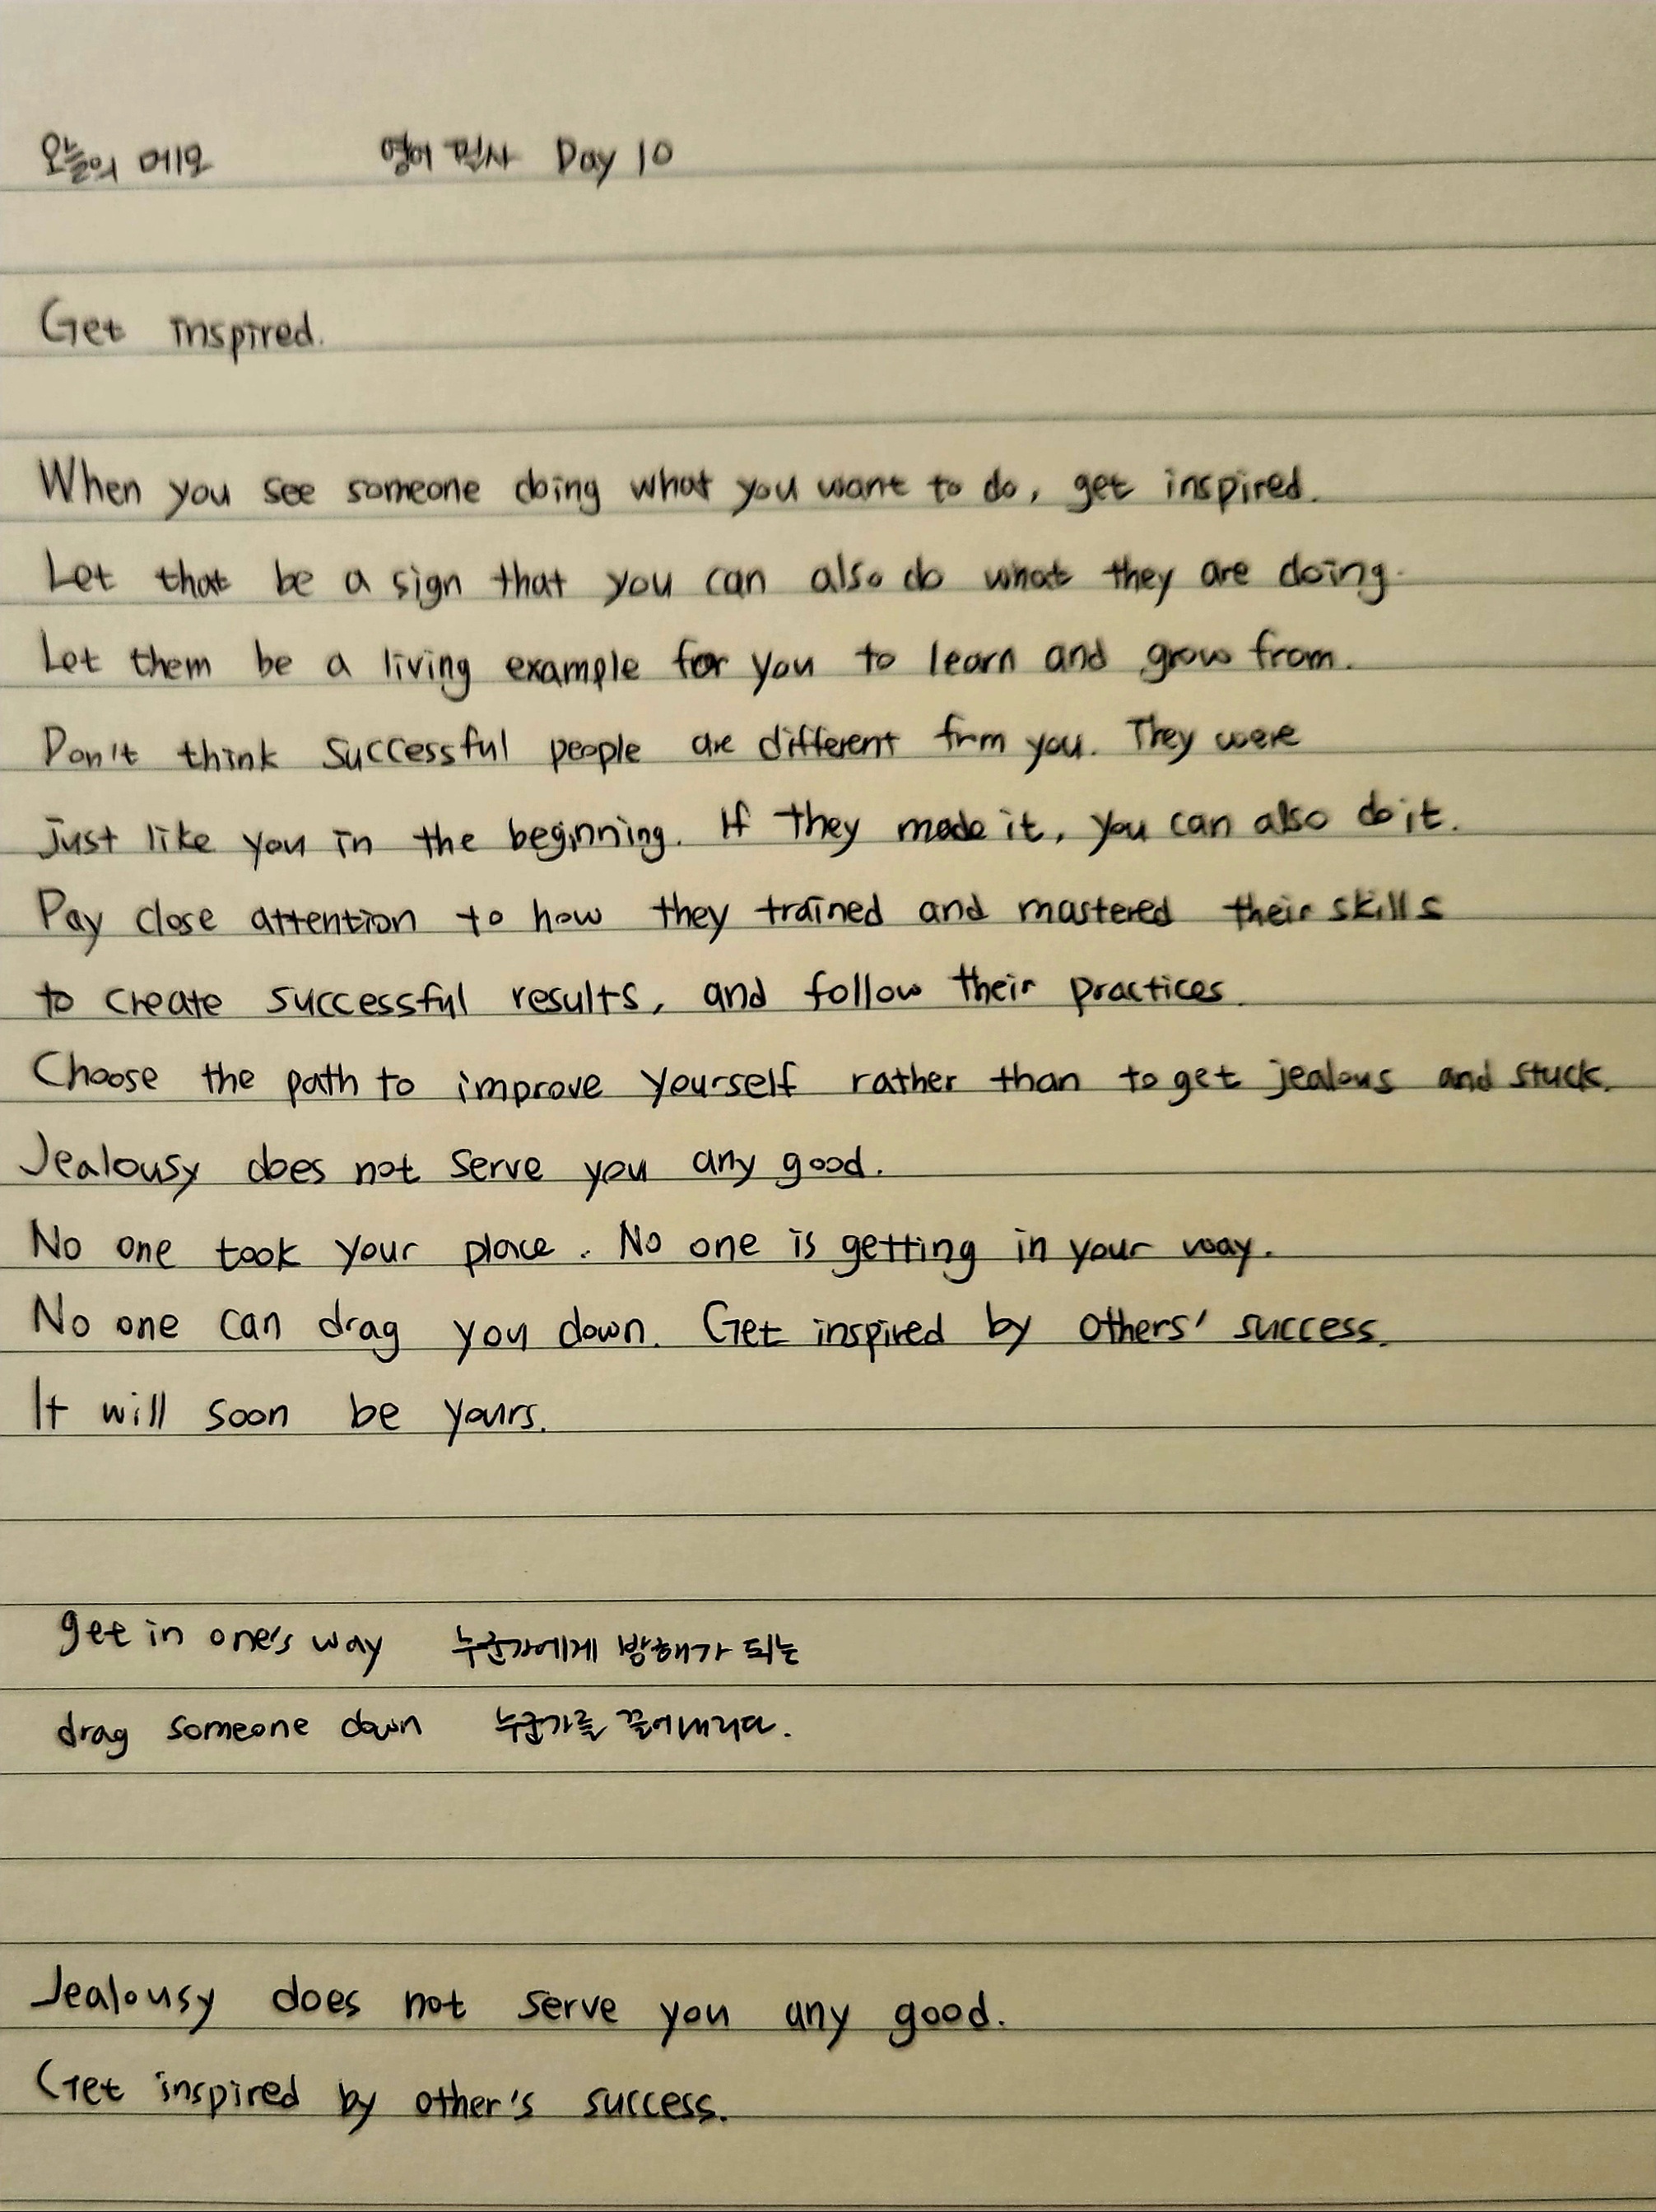 오늘의 메모 영어 필사 Day 10
Get inspired.
When you see someone doing what you want to do, get inspired.
Let that be a sign that you can also do what they are doing.
Let them be a living example for you to learn and grow from.
Don't think successful people are different from you. They were
just like you in the beginning. If they made it, you can also do it.
Pay close attention to how they trained and mastered their skills
to create successful results, and follow their practices.
Choose the path to improve yourself rather than to get jealous and stuck.
Jealousy does not serve you any good.
No one took your place. No one is getting in your way.
No one can drag you down. Get inspired by others' success.
It will soon be yours.
get in one's way 누군가에게 방해가 되는
drag someone down 누군가를 끌어내리다.
Jealousy does not serve you any good.
Get inspired by other's success.